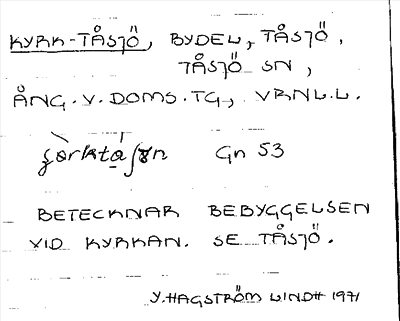 KYRK-TÅSJÖ, BYDEL, TÅSJÖ,
TÅSJÖ SN,
ÅNG. V. DOMS. TG, VRNL.L.
Gn 53
BETECKNAR BEBYGGELSEN
VID KYRKAN. SE TÅSJÖ.
Y. HAGSTRÖM LINDH 1971